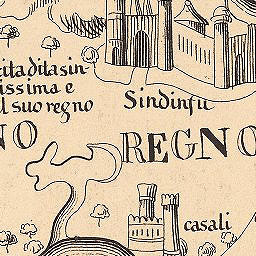 cita ditasin-
issima e
l suo regno
Sindinfu
NO REGNO
casali